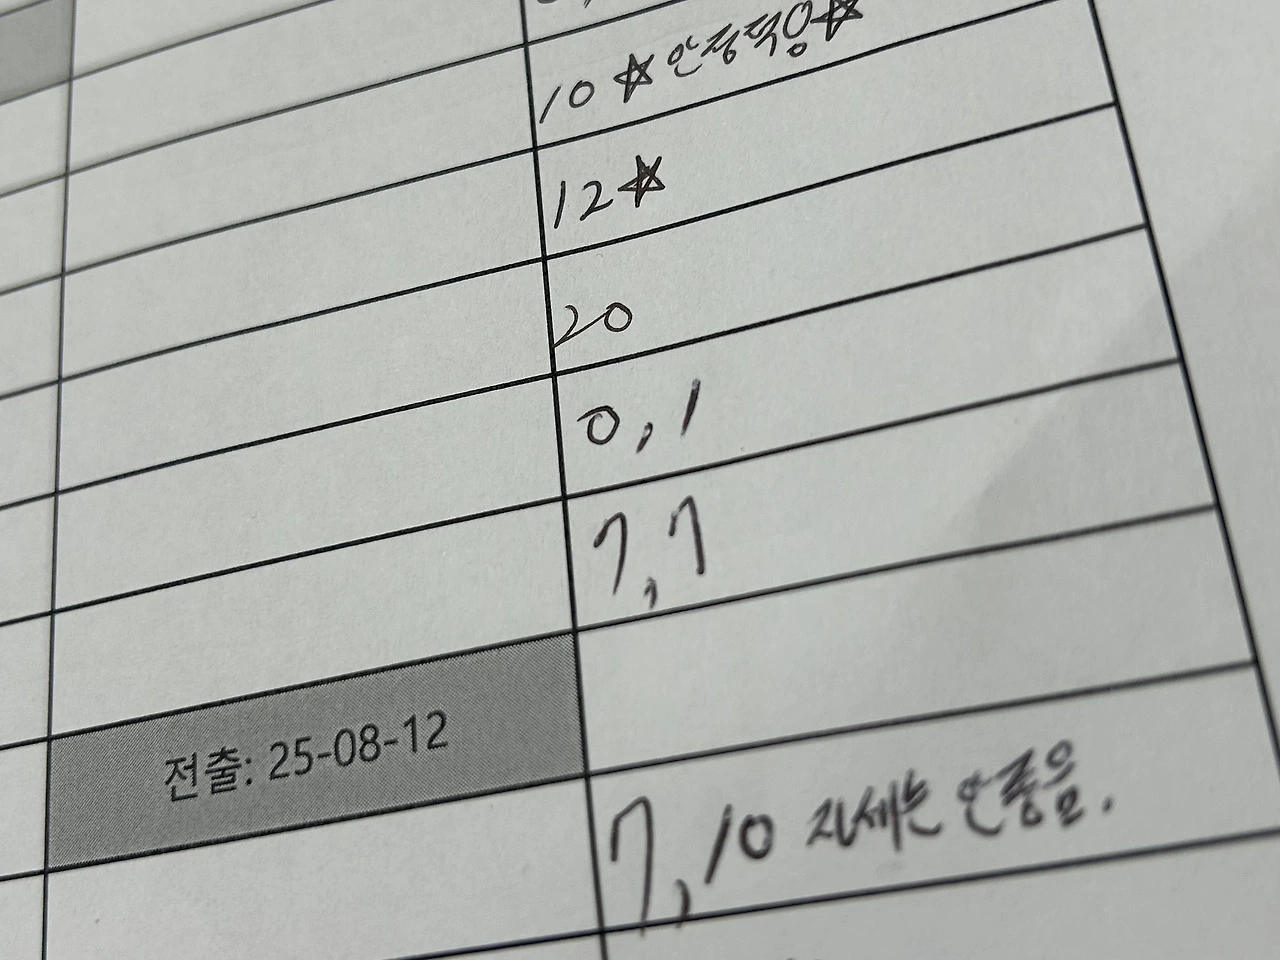 10 ☆안정적임☆
12☆
20
0, 1
7, 7
전출: 25-08-12
7, 10 자세는 안좋음.